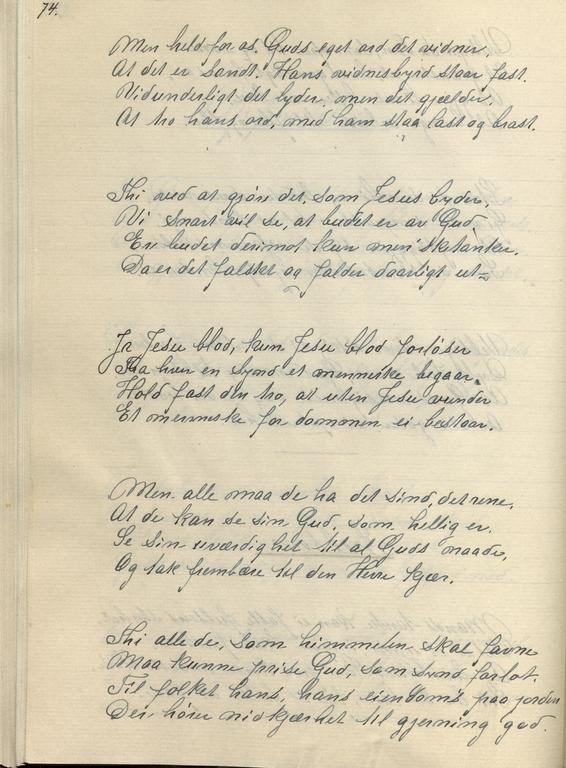 74.
Men held for os. Guds eget ord det vidner,
At det er sandt. Hans vidnesbyrd staar fast.
Vidunderligt det lyder, men det gjælder
At tro hans ord, med ham staa last og brast.
Thi ved at gjøre det, som Jesus byder,
Vi snart vil se, at budet er av Gud,
Er budet derimot kun men'sketanker,
Da er det falsket og falder daarligt ut
Ja Jesu blod, kun Jesu blod forløser
Fra hver en synd et menneske begaar.
Hold fast den tro, at uten Jesu vunder
Et menneske for dommen ei bestaar.
Men alle maa de ha det sind, det rene,
At de kan se sin Gud, som hellig er,
Se sin uværdighet til al Guds naade,
Og tak frembære til den Herre kjær.
Thi alle de, som himmelen skal favne
Maa kunne prise Gud, som synd forlot.
Til folket hans, hans eiendom's, paa jorden
Der hører nidkjærhet til gjerning god.